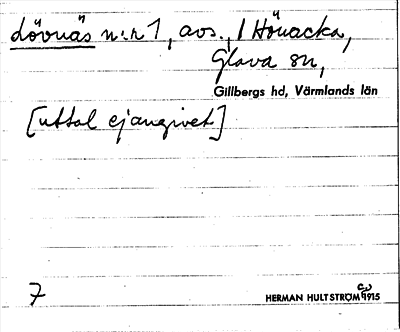 Lövnäs n:r 1, avs., / Hönacka,
Glava sn,
Gillbergs hd, Värmlands län
[uttal ej angivet]
7
HERMAN HULTSTRÖM 1915